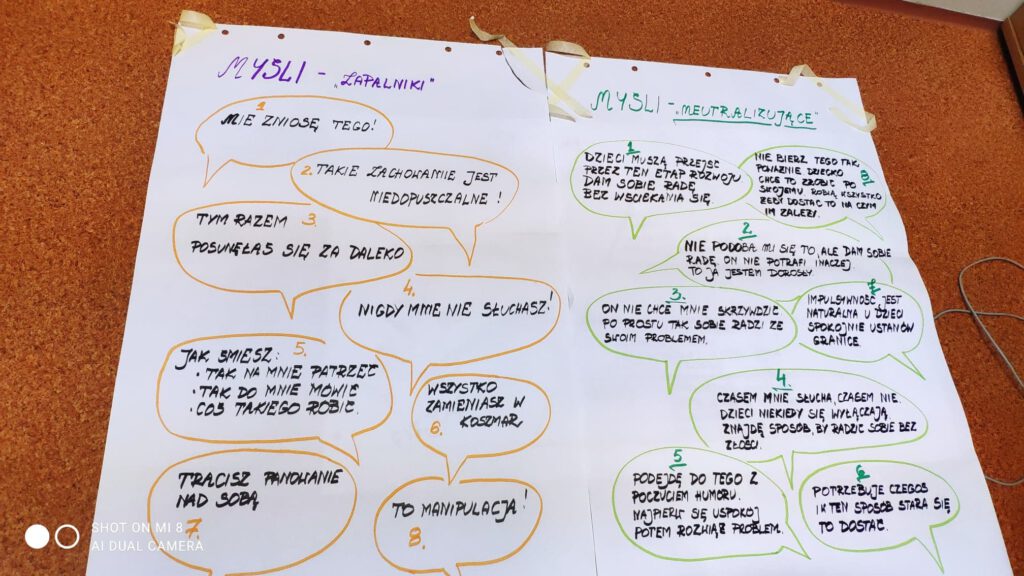 MYŚLI - „ZAPALNIKI"
1
NIE ZNIOSĘ TEGO!
2. TAKIE ZACHOWANIE JEST
NIEDOPUSZCZALNE!
TYM RAZEM 3.
POSUNĘŁAŚ SIĘ ZA DALEKO
4.
NIGDY MNIE NIE SŁUCHASZ!
JAK ŚMIESZ: 5.
• TAK NA MNIE PATRZEĆ
• TAK DO MNIE MÓWIĆ
• COŚ TAKIEGO ROBIĆ.
WSZYSTKO
ZAMIENIASZ W
6. KOSZMAR,
TRACISZ PANOWANIE
NAD SOBĄ
7.
TO MANIPULACJA!
8.
MYŚLI - „NEUTRALIZUJĄCE"
1
DZIECI MUSZĄ PRZEJŚĆ
PRZEZ TEN ETAP ROZWOJU
DAM SOBIE RADĘ
BEZ WŚCIEKANIA SIĘ.
NIE BIERZ TEGO TAK
POWAŻNIE DZIECKO 8
CHCE TO ZROBIĆ PO
SWOJEMU ROBIĄ WSZYSTKO
ŻEBY DOSTAĆ TO NA CZYM
IM ZALEŻY.
2.
NIE PODOBA MI SIĘ TO, ALE DAM SOBIE
RADĘ. ON NIE POTRAFI INACZEJ
TO JA JESTEM DOROSŁY.
3.
ON NIE CHCE MNIE SKRZYWDZIĆ
PO PROSTU TAK SOBIE RADZI ZE
SWOIM PROBLEMEM.
7
IMPULSYWNOŚĆ JEST
NATURALNA U DZIECI
SPOKOJNIE USTANÓW
GRANICE.
4.
CZASEM MNIE SŁUCHA, CZASEM NIE.
DZIECI NIEKIEDY SIĘ WYŁĄCZAJĄ
ZNAJDĘ SPOSÓB, BY RADZIĆ SOBIE BEZ
ZŁOŚCI.
5
PODEJDĘ DO TEGO Z
POCZUCIEM HUMORU.
NAJPIERW SIĘ USPOKÓJ
POTEM ROZWIĄŻ PROBLEM.
6
POTRZEBUJE CZEGOŚ
I W TEN SPOSÓB STARA SIĘ
TO DOSTAĆ.
SHOT ON MI 8
AI DUAL CAMERA